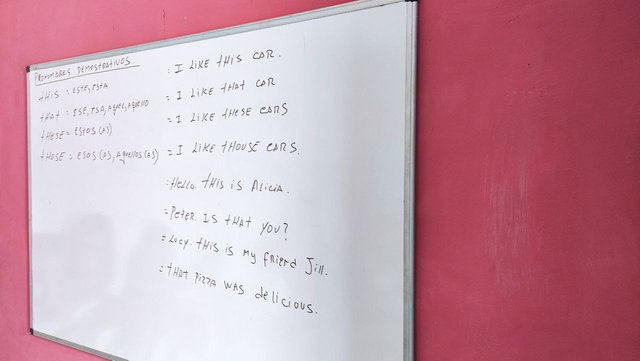 PRONOMBRES DEMOSTRATIVOS
tHiS = ESTE, ESTA
tHAt = ESE, ESA, AQUEL, AQUELLO
tHESE = EStOS (AS)
tHOSE = ESOS (AS), AQUELLOS (AS)
= I LIKE tHiS CAR.
= I LIKE tHAt CAR
= I LIKE tHESE CARS
= I LIKE tHOUSE CARS.
= Hello. tHiS iS AliciA.
= PEtER IS tHAt YOU?
= LUCY. tHiS iS my fRiEnd Jill.
= tHAt PizzA WAS deLiciOUS.